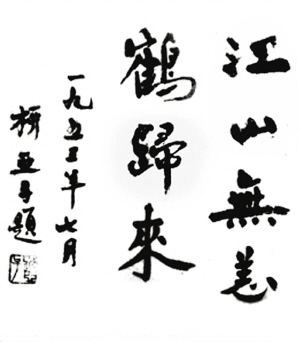 江山無恙
鶴歸來
一九五年七月
柳亞子題